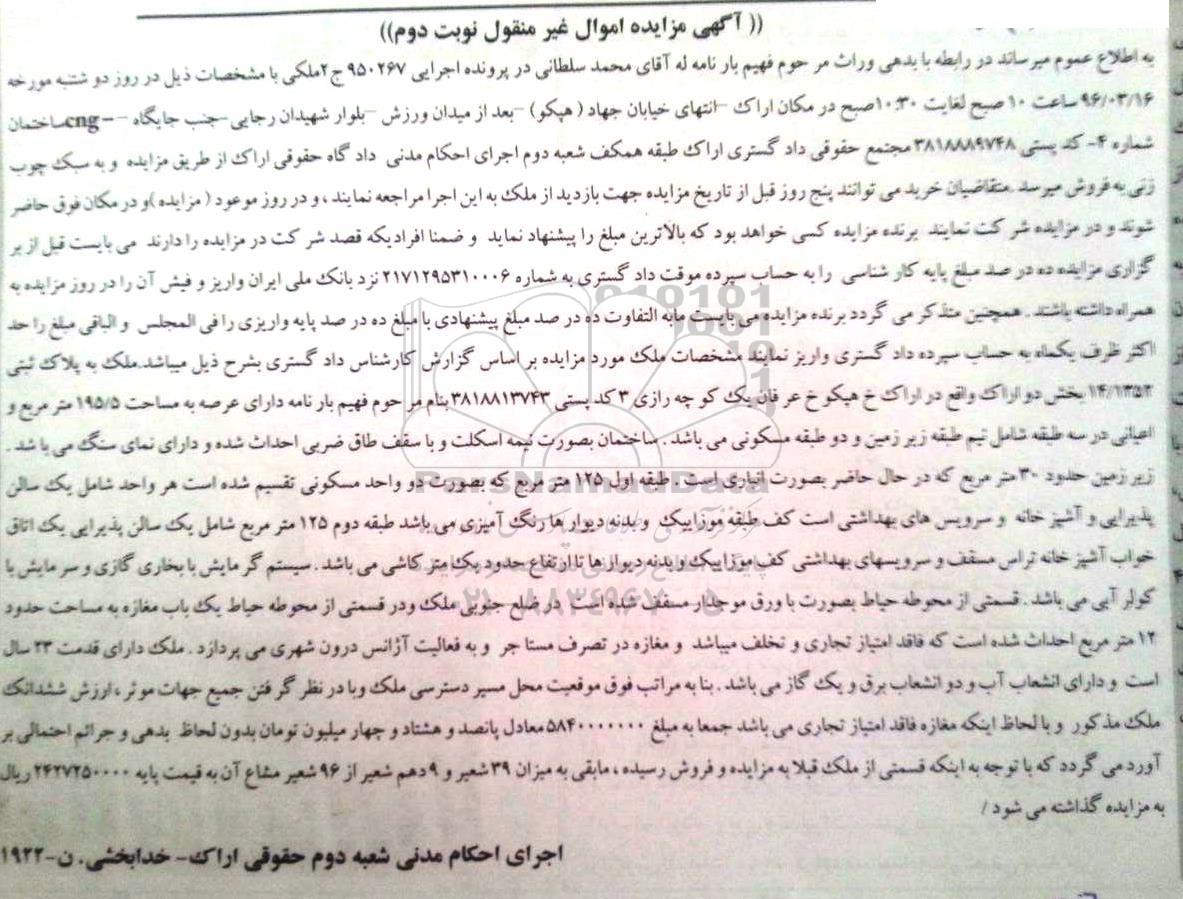 (( آگهی مزایده اموال غیر منقول نوبت دوم))
به اطلاع عموم میرساند در رابطه با بدهی وراث مر حوم فهیم بار نامه له آقای محمد سلطانی در پرونده اجرایی ۹۵۰۲۶۷ ج۲ملکی با مشخصات ذیل در روز دو شنبه مورخه
۹۶/۰۳/۱۶ ساعت ۱۰ صبح لغایت ۱۰:۳۰صبح در مکان اراک –انتهای خیابان جهاد ( هپکو) –بعد از میدان ورزش –بلوار شهیدان رجایی-جنب جایگاه –cng–ساختمان
شماره ۴- کد پستی ۳۸۱۸۸۸۹۷۴۸ مجتمع حقوقی داد گستری اراک طبقه همکف شعبه دوم اجرای احکام مدنی داد گاه حقوقی اراک از طریق مزایده و به سبک چوب
زنی به فروش میرسد .متقاضیان خرید می توانند پنج روز قبل از تاریخ مزایده جهت بازدید از ملک به این اجرا مراجعه نمایند ، و در روز موعود ( مزایده )و در مکان فوق حاضر
شوند و در مزایده شر کت نمایند برنده مزایده کسی خواهد بود که بالاترین مبلغ را پیشنهاد نماید و ضمنا افرادیکه قصد شر کت در مزایده را دارند می بایست قبل از بر
گزاری مزایده ده در صد مبلغ پایه کار شناسی را به حساب سپرده موقت داد گستری به شماره ۲۱۷۱۲۹۵۳۱۰۰۰۶ نزد بانک ملی ایران واریز و فیش آن را در روز مزایده به
همراه داشته باشند . همچنین متذکر می گردد برنده مزایده می بایست مابه التفاوت ده در صد مبلغ پیشنهادی با مبلغ ده در صد پایه واریزی را فی المجلس و الباقی مبلغ را حد
اکثر ظرف یکماه به حساب سپرده داد گستری واریز نمایند مشخصات ملک مورد مزایده بر اساس گزارش کارشناس داد گستری بشرح ذیل میباشد.ملک به پلاک ثبتی
۱۴/۱۳۵۲ بخش دو اراک واقع در اراک خ هپکو خ عر فان یک کو چه رازی ۳ کد پستی ۳۸۱۸۸۱۳۷۴۳ بنام مر حوم فهیم بار نامه دارای عرصه به مساحت ۱۹۵/۵ متر مربع و
اعیانی در سه طبقه شامل نیم طبقه زیر زمین و دو طبقه مسکونی می باشد . ساختمان بصورت نیمه اسکلت و با سقف طاق ضربی احداث شده و دارای نمای سنگ می با شد .
زیر زمین حدود ۳۰ متر مربع که در حال حاضر بصورت انباری است . طبقه اول ۱۲۵ متر مربع که بصورت دو واحد مسکونی تقسیم شده است هر واحد شامل یک سالن
پذیرایی و آشپز خانه و سرویس های بهداشتی است کف طبقه موزاییک و بدنه دیوار ها رنگ آمیزی می باشد طبقه دوم ۱۲۵ متر مربع شامل یک سالن پذیرایی یک اتاق
خواب آشپز خانه تراس مسقف و سرویسهای بهداشتی کف موزاییک و بدنه دیوار ها تا ارتفاع حدود یک متر کاشی می باشد . سیستم گر مایش با بخاری گازی و سر مایش با
کولر آبی می باشد . قسمتی از محوطه حیاط بصورت با ورق مو جدار مسقف شده است در ضلع جنوبی ملک ودر قسمتی از محوطه حیاط یک باب مغازه به مساحت حدود
۱۲ متر مربع احداث شده است که فاقد امتیاز تجاری و تخلف میباشد و مغازه در تصرف مستا جر و به فعالیت آژانس درون شهری می پردازد . ملک دارای قدمت ۲۳ سال
است و دارای انشعاب آب و دو انشعاب برق و یک گاز می باشد . بنا به مراتب فوق موقعیت محل مسیر دسترسی ملک وبا در نظر گر فتن جمیع جهات موثر ، ارزش ششدانک
ملک مذکور و با لحاظ اینکه مغازه فاقد امتیاز تجاری می باشد جمعا به مبلغ ۵۸۴۰۰۰۰۰۰۰ معادل پانصد و هشتاد و چهار میلیون تومان بدون لحاظ بدهی و جرائم احتمالی بر
آورد می گردد که با توجه به اینکه قسمتی از ملک قبلا به مزایده و فروش رسیده ، مابقی به میزان ۳۹ شعیر و ۹ دهم شعیر از ۹۶ شعیر مشاع آن به قیمت پایه ۲۴۲۷۲۵۰۰۰۰ ریال
به مزایده گذاشته می شود /
اجرای احکام مدنی شعبه دوم حقوقی اراک- خدابخشی. ن-۱۹۲۲
ParsNamadData
۰۲۱-۸۸۳۴۹۶۷۰-۵